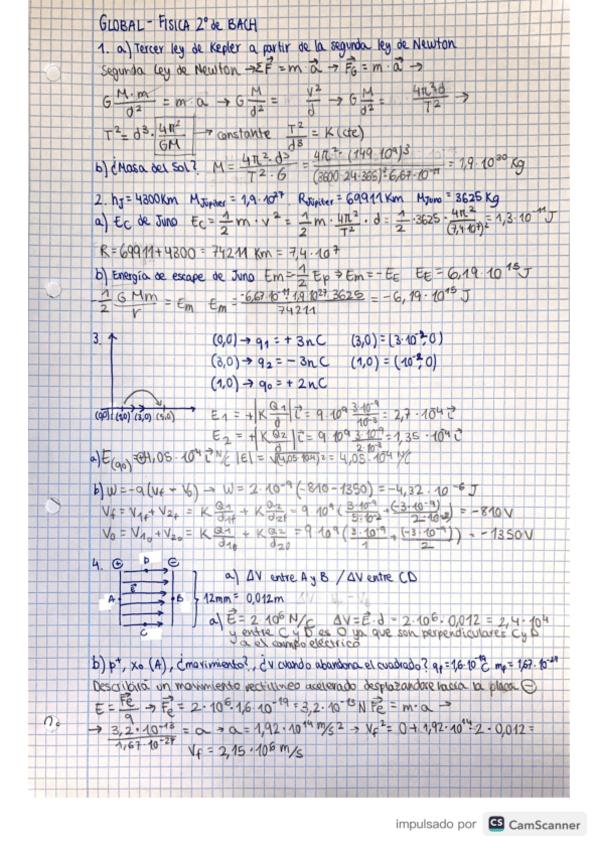 GLOBAL - FISICA 2º de BACH
1. a) Tercer ley de Kepler a partir de la segunda ley de Newton
Segunda Ley de Newton → ΣF = m·a → FG = m·a →
G M·m/d² = m·a → G M/d² = v²/d → G M/d² = 4π²d/T² →
T² = d³· 4π²/GM → constante T²/d³ = K (cte)
b) ¿Masa del Sol? M = 4π²·d³/T²·G = 4π²·(149·10⁹)³/(3600·24·365)²·6,67·10⁻¹¹ = 1,9·10³⁰ Kg
2. hJ = 4300Km MJúpiter = 1,9·10²⁷ RJúpiter = 69911Km MJuno = 3625 Kg
a) Ec de Juno Ec = 1/2 m·v² = 1/2 m· 4π²/T² ·d = 1/2 ·3625· 4π²/(7,4·10⁷)² = 1,3·10⁻¹¹ J
R = 69911 + 4300 = 74211 Km = 7,4·10⁷
b) Energía de escape de Juno Em = 1/2 Ep → Em = -EE EE = 6,19·10¹⁵ J
-1/2 GMm/r = Em Em = -6,67·10⁻¹¹·1,9·10²⁷·3625/74211 = -6,19·10¹⁵ J
3. (0,0) → q1 = +3nC (3,0) = (3·10⁻²,0)
(3,0) → q2 = -3nC (1,0) = (10⁻²,0)
(1,0) → q0 = +2nC
(0,0) (1,0) (3,0) (5,0)
E1 = +|K Q1/d| i = 9·10⁹ 3·10⁻⁹/10⁻³ = 2,7·10⁴ i
E2 = +|K Q2/d| i = 9·10⁹ 3·10⁻⁹/2·10⁻³ = 1,35·10⁴ i
a) E(q0) = 4,05·10⁴ i N/C |E| = √(4,05·10⁴)² = 4,05·10⁴ N/C
b) W = -q(Vf - V0) → W = 2·10⁻⁹(-810-1350) = -4,32·10⁻⁶ J
Vf = V1f + V2f = K Q1/d1f + K Q2/d2f = 9·10⁹ (3·10⁻⁹/5·10⁻² + (-3·10⁻⁹)/2·10⁻²) = -810V
V0 = V10 + V20 = K Q1/d10 + K Q2/d20 = 9·10⁹ (3·10⁻⁹/1 + (-3·10⁻⁹)/2) = -1350V
4. ⊕ D ⊖
a) ΔV entre A y B / ΔV entre CD
E
A B 12mm = 0,012m
C
a) E = 2·10⁶ N/C ΔV = E·d = 2·10⁶·0,012 = 2,4·10⁴
y entre C y D es 0 ya que son perpendiculares C y D
a el campo eléctrico
b) p⁺, x0 (A), ¿movimiento?, ¿v cuando abandona el cuadrado? qp = 1,6·10⁻¹⁹C mp = 1,67·10⁻²⁷
Describirá un movimiento rectilíneo acelerado desplazandose hacia la placa ⊖
E = Fe/q → Fe = 2·10⁶·1,6·10⁻¹⁹ = 3,2·10⁻¹³ N Fe = m·a →
→ 3,2·10⁻¹³/1,67·10⁻²⁷ = a → a = 1,92·10¹⁴ m/s² → Vf² = 0 + 1,92·10¹⁴·2·0,012 =
Vf = 2,15·10⁶ m/s
impulsado por CS CamScanner